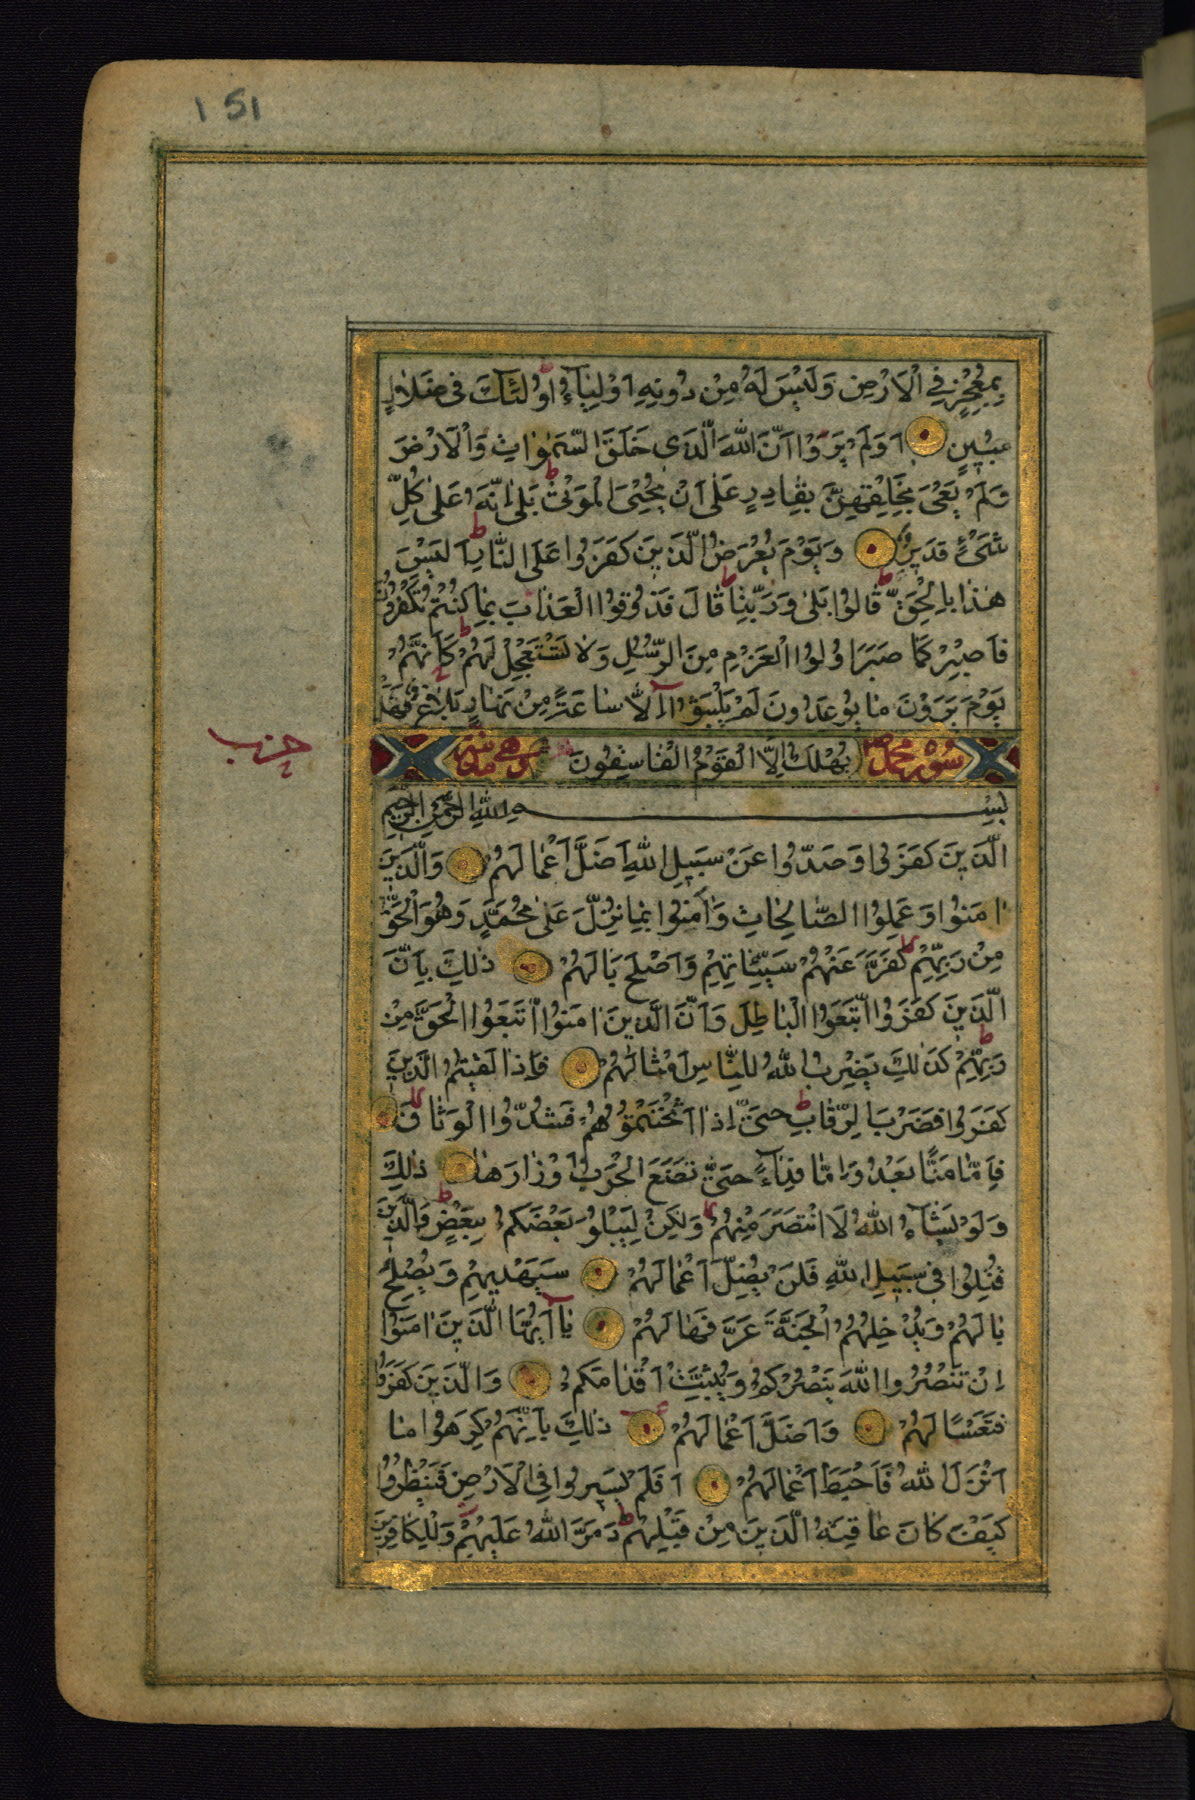 151
بِمُعْجِزٍ فِي الْاَرْضِ وَلَيْسَ لَهُ مِنْ دُونِهِ اَوْلِيَآءُ اُولٰئِكَ فِى ضَلَالٍ
مُبِينٍ اَوَلَمْ يَرَوْا اَنَّ اللّٰهَ الَّذِى خَلَقَ السَّمٰوَاتِ وَالْاَرْضَ
وَلَمْ يَعْىَ بِخَلْقِهِنَّ بِقَادِرٍ عَلٰى اَنْ يُحْيِىَ الْمَوْتٰى بَلٰى اِنَّهُ عَلٰى كُلِّ
شَىْءٍ قَدِيرٌ وَيَوْمَ يُعْرَضُ الَّذِينَ كَفَرُوا عَلَى النَّارِ اَلَيْسَ
هٰذَا بِالْحَقِّ قَالُوا بَلٰى وَرَبِّنَا قَالَ فَذُوقُوا الْعَذَابَ بِمَا كُنْتُمْ تَكْفُرُونَ
فَاصْبِرْ كَمَا صَبَرَ اُولُوا الْعَزْمِ مِنَ الرُّسُلِ وَلَا تَسْتَعْجِلْ لَهُمْ كَاَنَّهُمْ
يَوْمَ يَرَوْنَ مَا يُوعَدُونَ لَمْ يَلْبَثُوا اِلَّا سَاعَةً مِنْ نَهَارٍ بَلَاغٌ فَهَلْ
سورة محمد يُهْلَكُ اِلَّا الْقَوْمُ الْفَاسِقُونَ وهى مدنية
حزب
بِسْمِ اللّٰهِ الرَّحْمٰنِ الرَّحِيمِ
الَّذِينَ كَفَرُوا وَصَدُّوا عَنْ سَبِيلِ اللّٰهِ اَضَلَّ اَعْمَالَهُمْ وَالَّذِينَ
اٰمَنُوا وَعَمِلُوا الصَّالِحَاتِ وَاٰمَنُوا بِمَا نُزِّلَ عَلٰى مُحَمَّدٍ وَهُوَ الْحَقُّ
مِنْ رَبِّهِمْ كَفَّرَ عَنْهُمْ سَيِّئَاتِهِمْ وَاَصْلَحَ بَالَهُمْ ذٰلِكَ بِاَنَّ
الَّذِينَ كَفَرُوا اتَّبَعُوا الْبَاطِلَ وَاَنَّ الَّذِينَ اٰمَنُوا اتَّبَعُوا الْحَقَّ مِنْ
رَبِّهِمْ كَذٰلِكَ يَضْرِبُ اللّٰهُ لِلنَّاسِ اَمْثَالَهُمْ فَاِذَا لَقِيتُمُ الَّذِينَ
كَفَرُوا فَضَرْبَ الرِّقَابِ حَتّٰى اِذَا اَثْخَنْتُمُوهُمْ فَشُدُّوا الْوَثَاقَ
فَاِمَّا مَنًّا بَعْدُ وَاِمَّا فِدَآءً حَتّٰى تَضَعَ الْحَرْبُ اَوْزَارَهَا ذٰلِكَ
وَلَوْ يَشَآءُ اللّٰهُ لَانْتَصَرَ مِنْهُمْ وَلٰكِنْ لِيَبْلُوَ بَعْضَكُمْ بِبَعْضٍ وَالَّذِينَ
قُتِلُوا فِى سَبِيلِ اللّٰهِ فَلَنْ يُضِلَّ اَعْمَالَهُمْ سَيَهْدِيهِمْ وَيُصْلِحُ
بَالَهُمْ وَيُدْخِلُهُمُ الْجَنَّةَ عَرَّفَهَا لَهُمْ يَآ اَيُّهَا الَّذِينَ اٰمَنُوا
اِنْ تَنْصُرُوا اللّٰهَ يَنْصُرْكُمْ وَيُثَبِّتْ اَقْدَامَكُمْ وَالَّذِينَ كَفَرُوا
فَتَعْسًا لَهُمْ وَاَضَلَّ اَعْمَالَهُمْ ذٰلِكَ بِاَنَّهُمْ كَرِهُوا مَا
اَنْزَلَ اللّٰهُ فَاَحْبَطَ اَعْمَالَهُمْ اَفَلَمْ يَسِيرُوا فِى الْاَرْضِ فَيَنْظُرُوا
كَيْفَ كَانَ عَاقِبَةُ الَّذِينَ مِنْ قَبْلِهِمْ دَمَّرَ اللّٰهُ عَلَيْهِمْ وَلِلْكَافِرِينَ